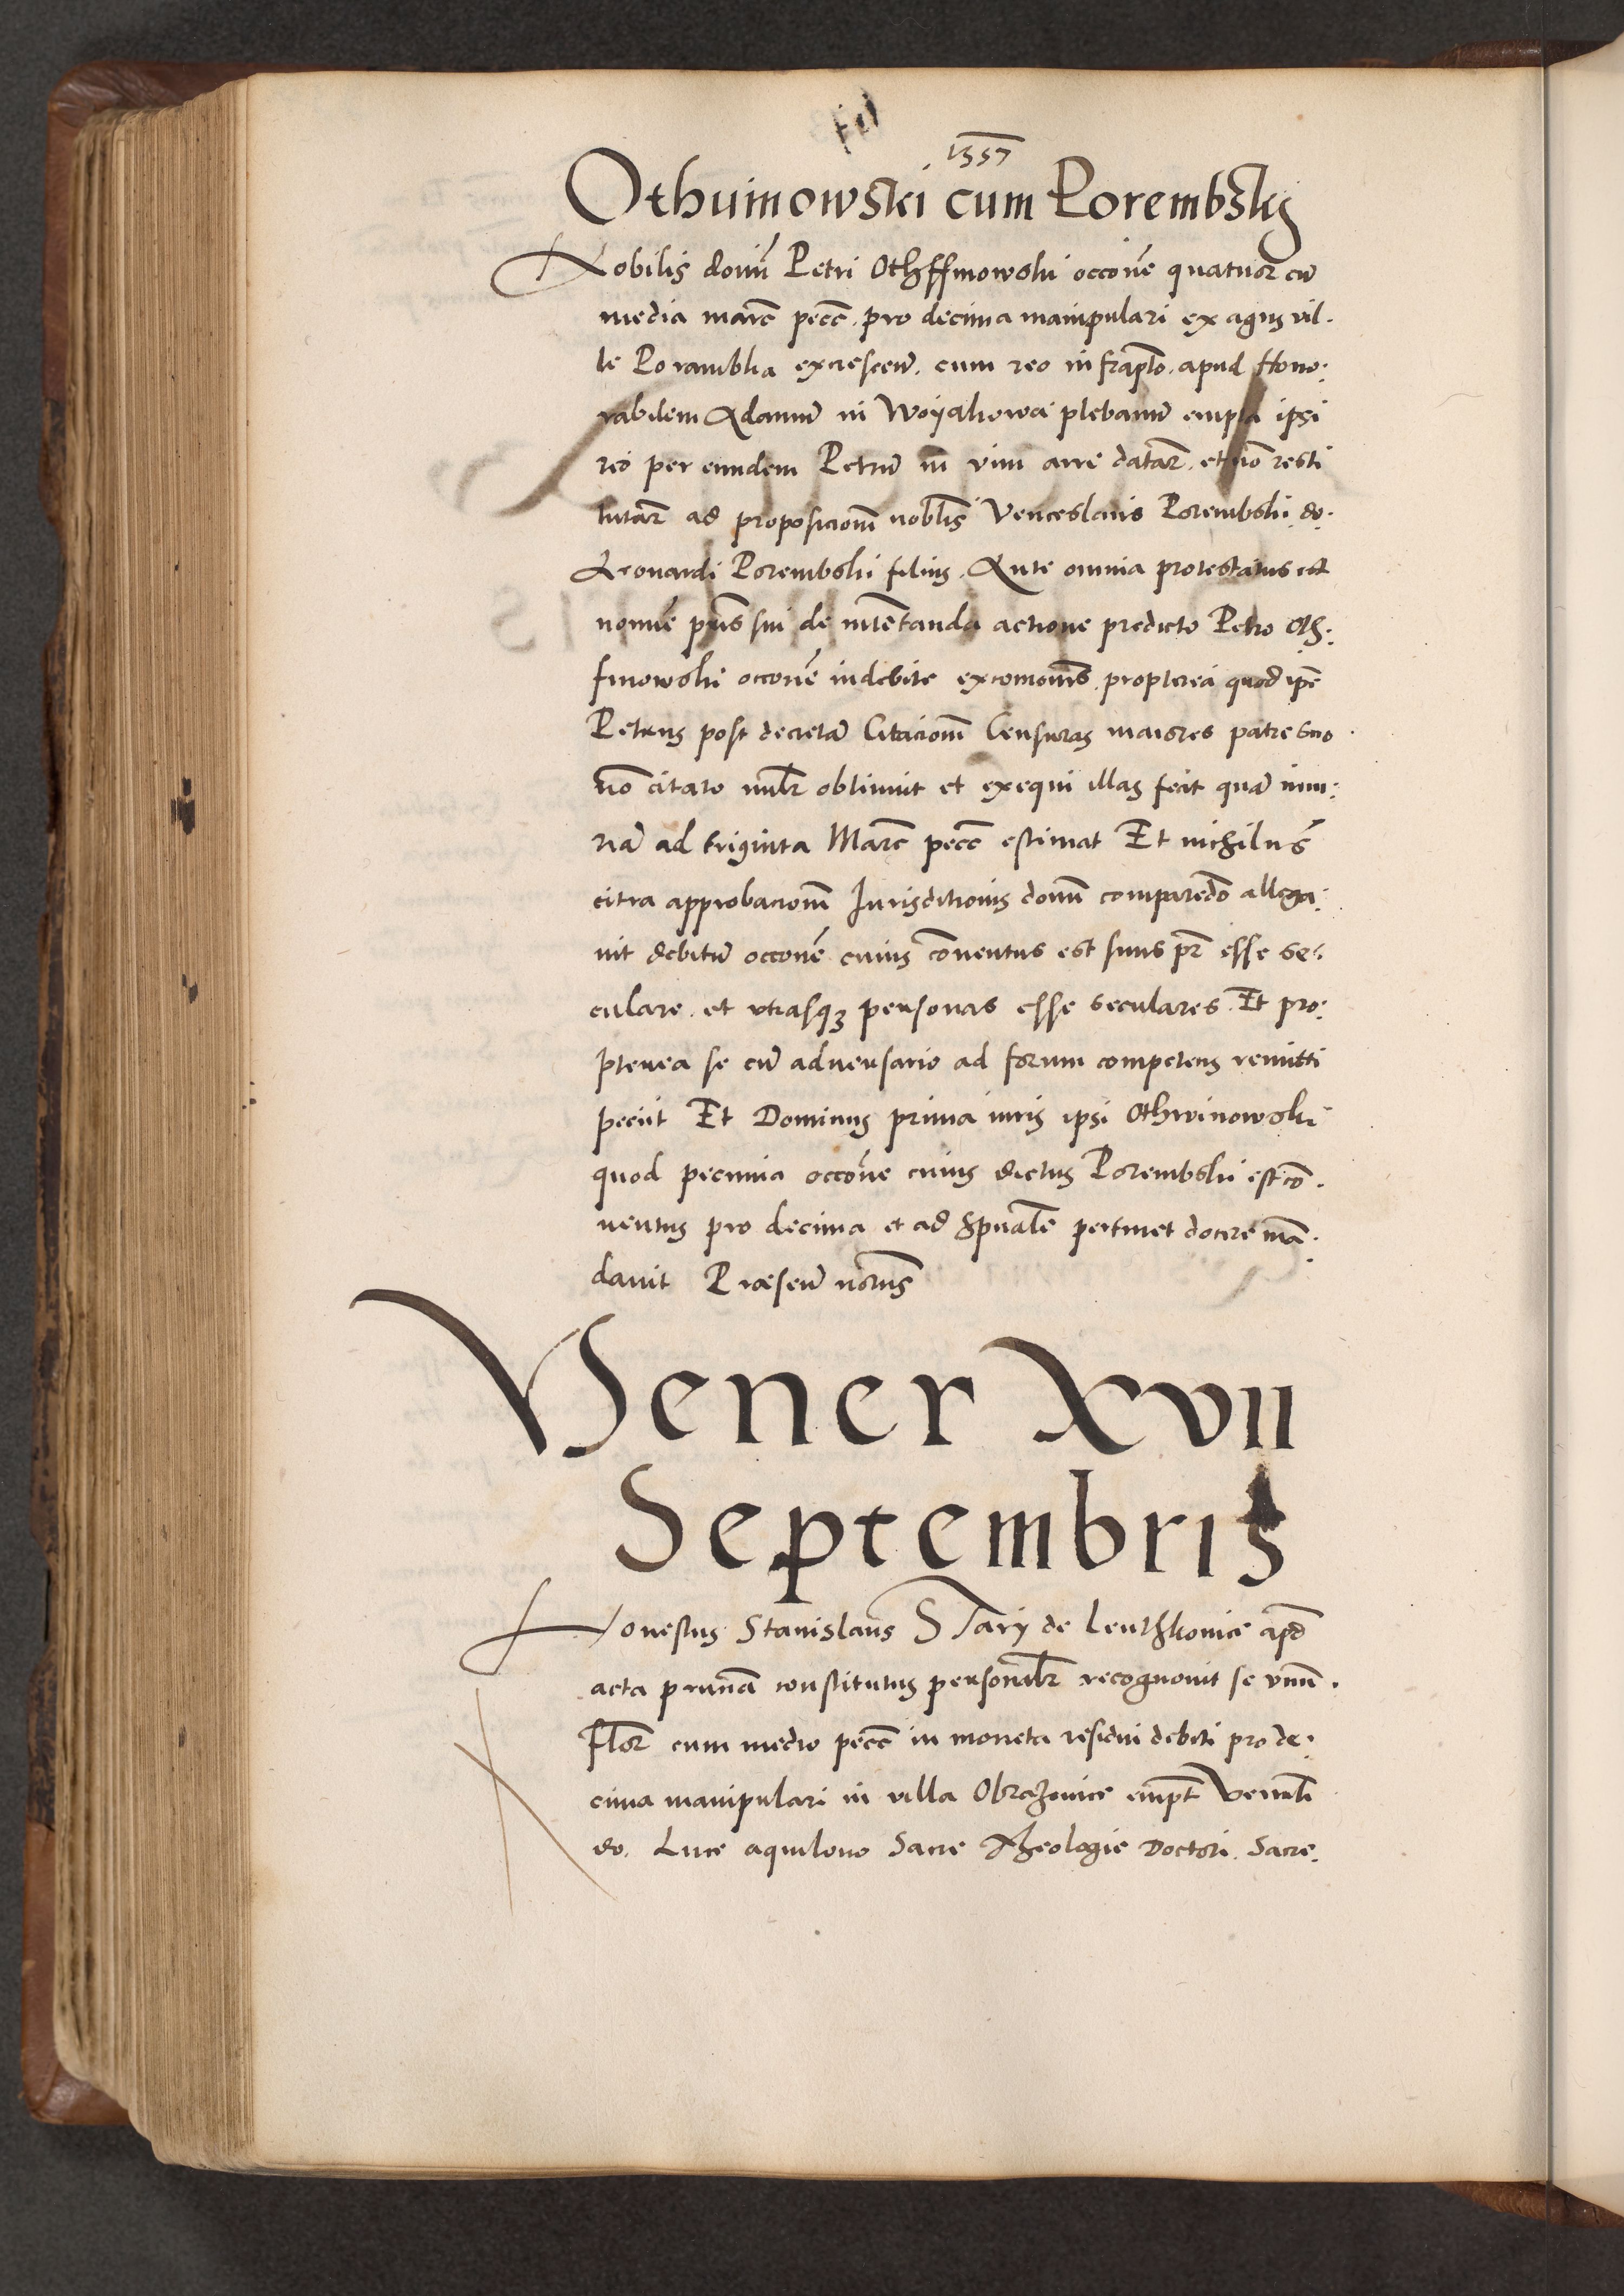 1557
Othuinowski cum Porembsky
Nobilis domini Petri Othffinowski occone quatuor cu
media marc pecc. pro decima manipulari ex agris vil.
le Porambka excrescen. cum reo infrapto. apud Hono:
rabilem Adamum in Woyakowa plebanum empta ipsi
reo per eundem Petrum in vim arre datar. et no resti
tutar ad proposicionem noblis Venceslaus Porembski do.
Leonardi Porembski filius. Ante omnia protestatus est
nomine pris sui de intentanda actione predicto Petro Oth:
finowski occone indebite excomonis. propterea quod ipe
Petrus post decretam Citacionem Censuras maiores patre suo
no citato nulr obtinuit et exequi illas fecit quam iniu:
riam ad triginta Marc pecc estimat Et nichilus
citra approbacionem Jurisditionis domini comparendo allega:
uit debitum occone cuius conuentus est suus pr esse se:
culare. et vtrasq3 personas esse seculares. Et pro:
pterea se cum aduersario ad forum competens remitti
peciit Et Dominus prima iuris ipsi Othwinowski
quod pecunia occone cuius dictus Porembski est co.
uentus pro decima et ad spuale pertinet docere ma:
dauit Presen notus
Vener XVII
Septembris
Honestus Stanislaus STary de Lenthkowice apd
acta presencia constitutus personalr recognouit se vnum.
flor cum medio pecc in moneta residui debiti pro de.
cima manipulari in villa Obrazowice empt Venerabli
do. Luce aquilono Sacre Theologie Doctori. Sacre: